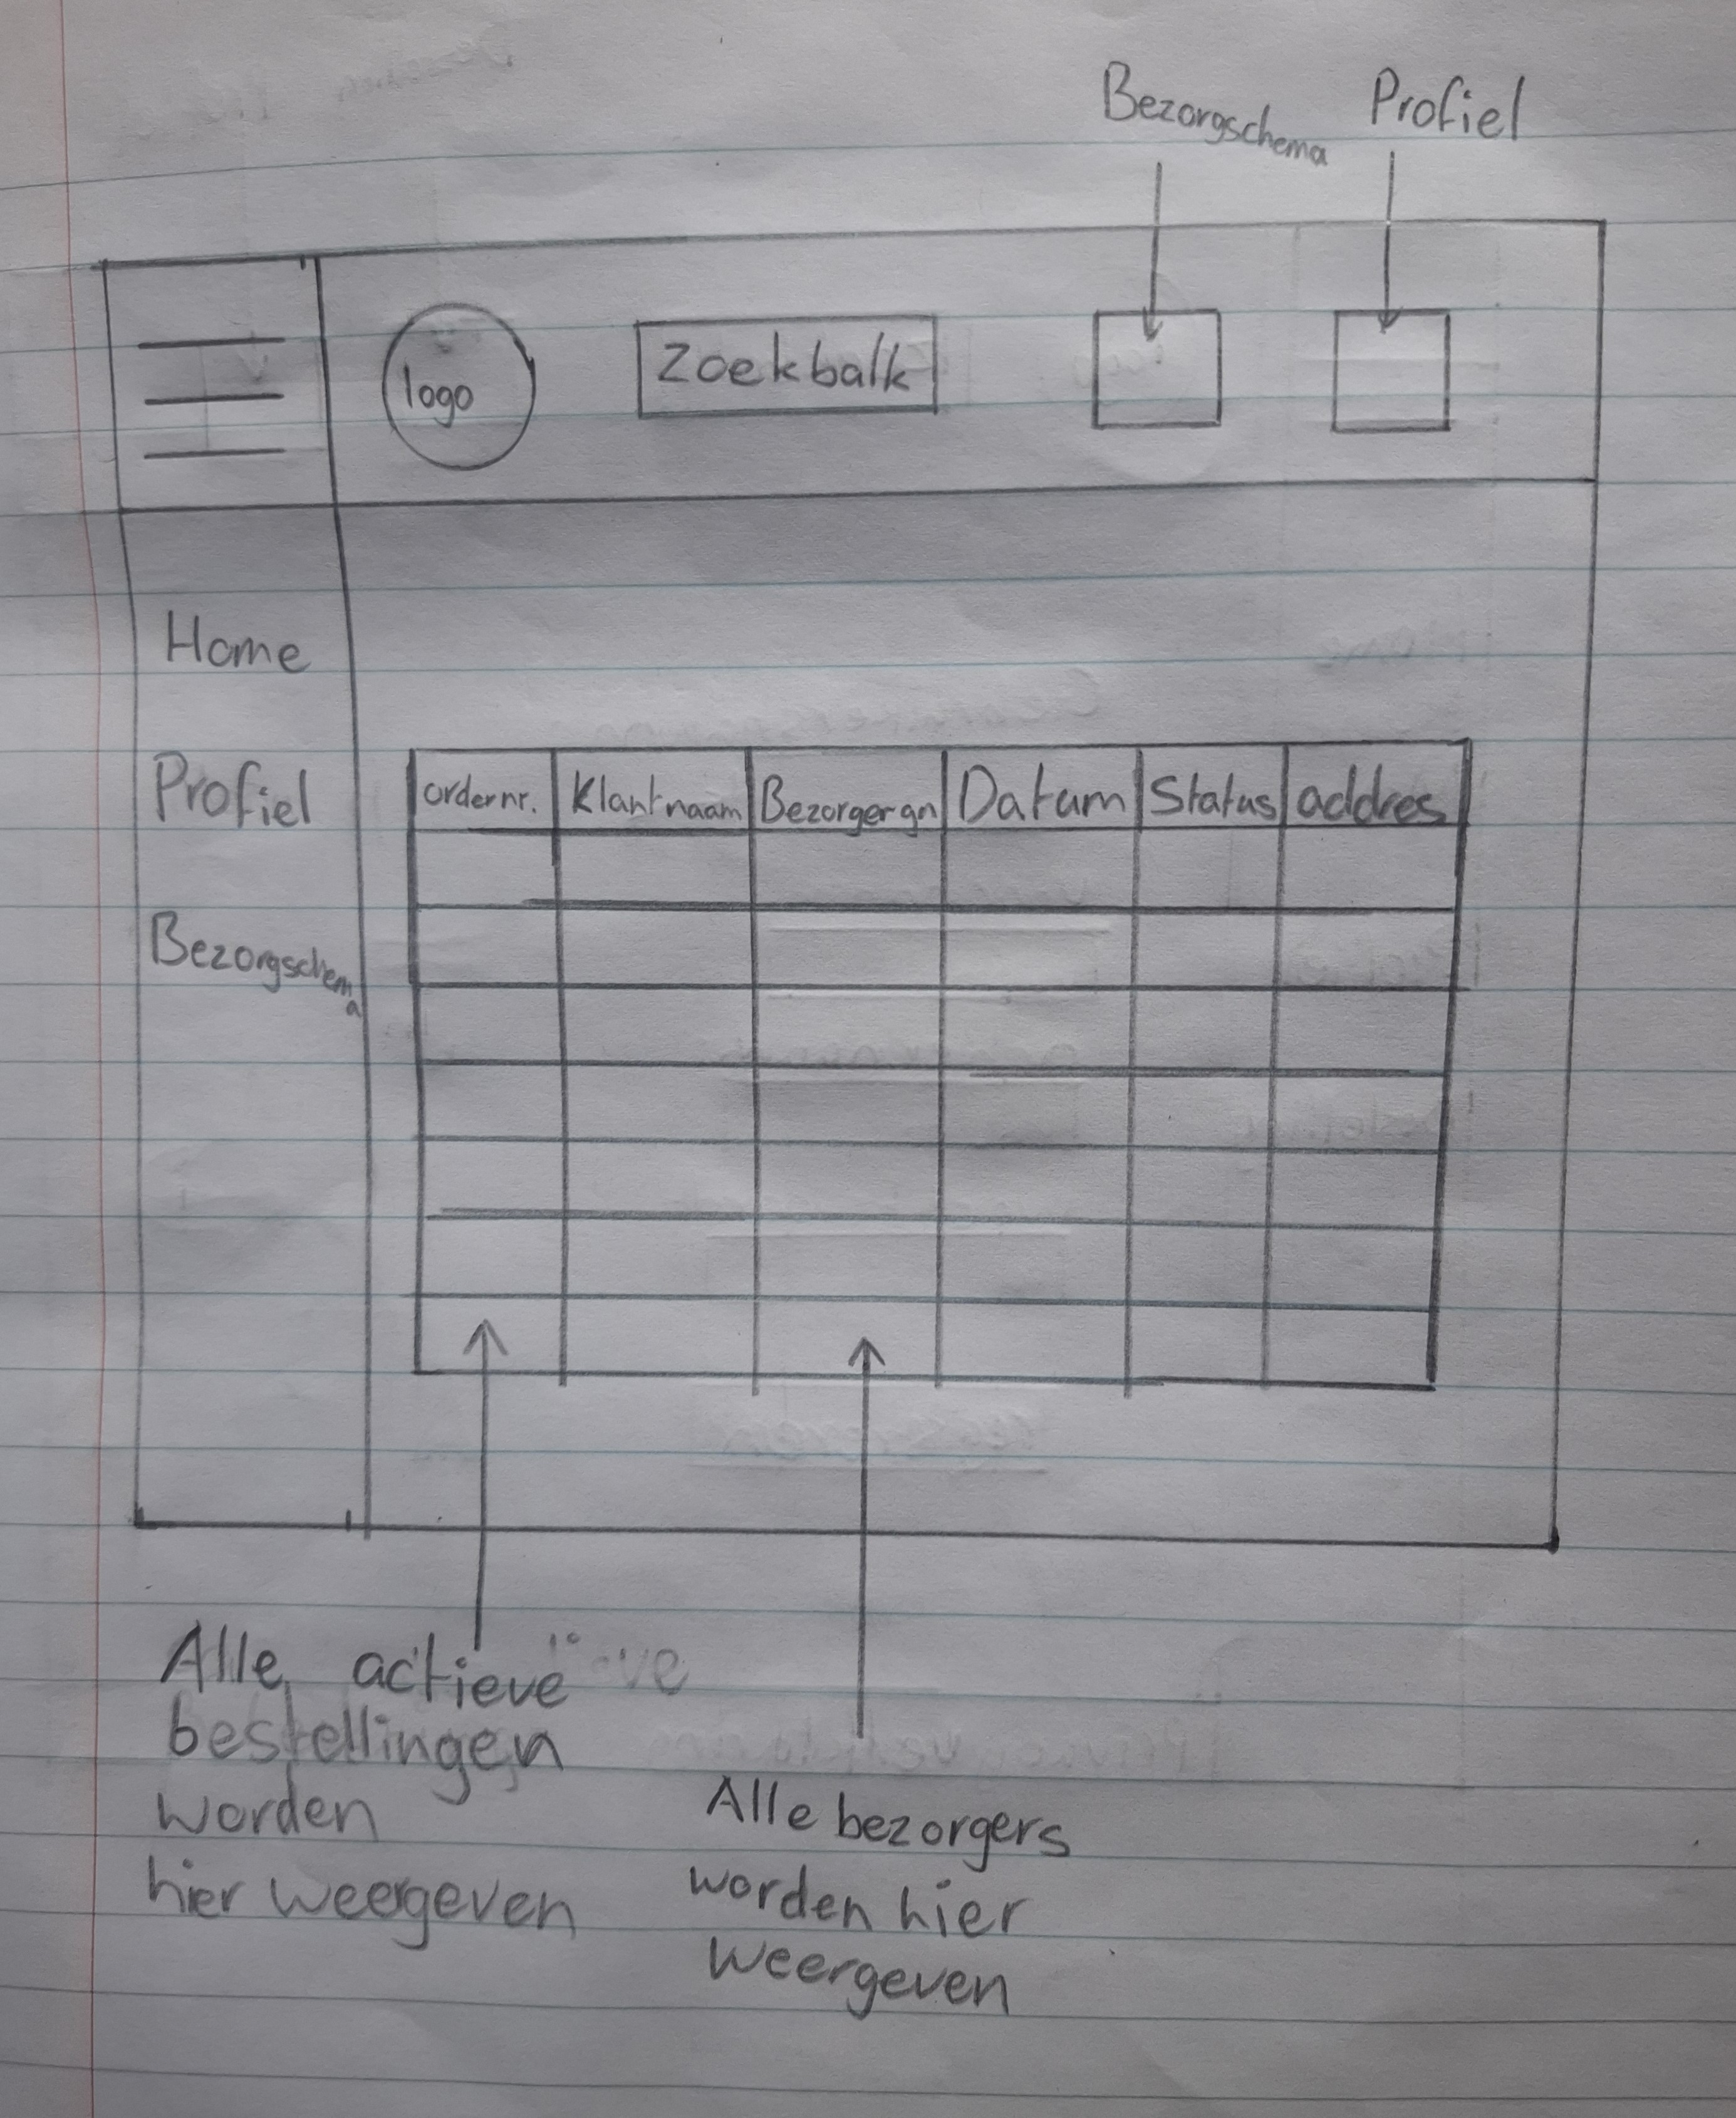 Bezorgschema Profiel
logo Zoekbalk
Home
Profiel
Bezorgschema
ordernr. Klantnaam Bezorgergn Datum Status addres
Alle actieve
bestellingen
worden
hier weergeven
Alle bezorgers
worden hier
weergeven